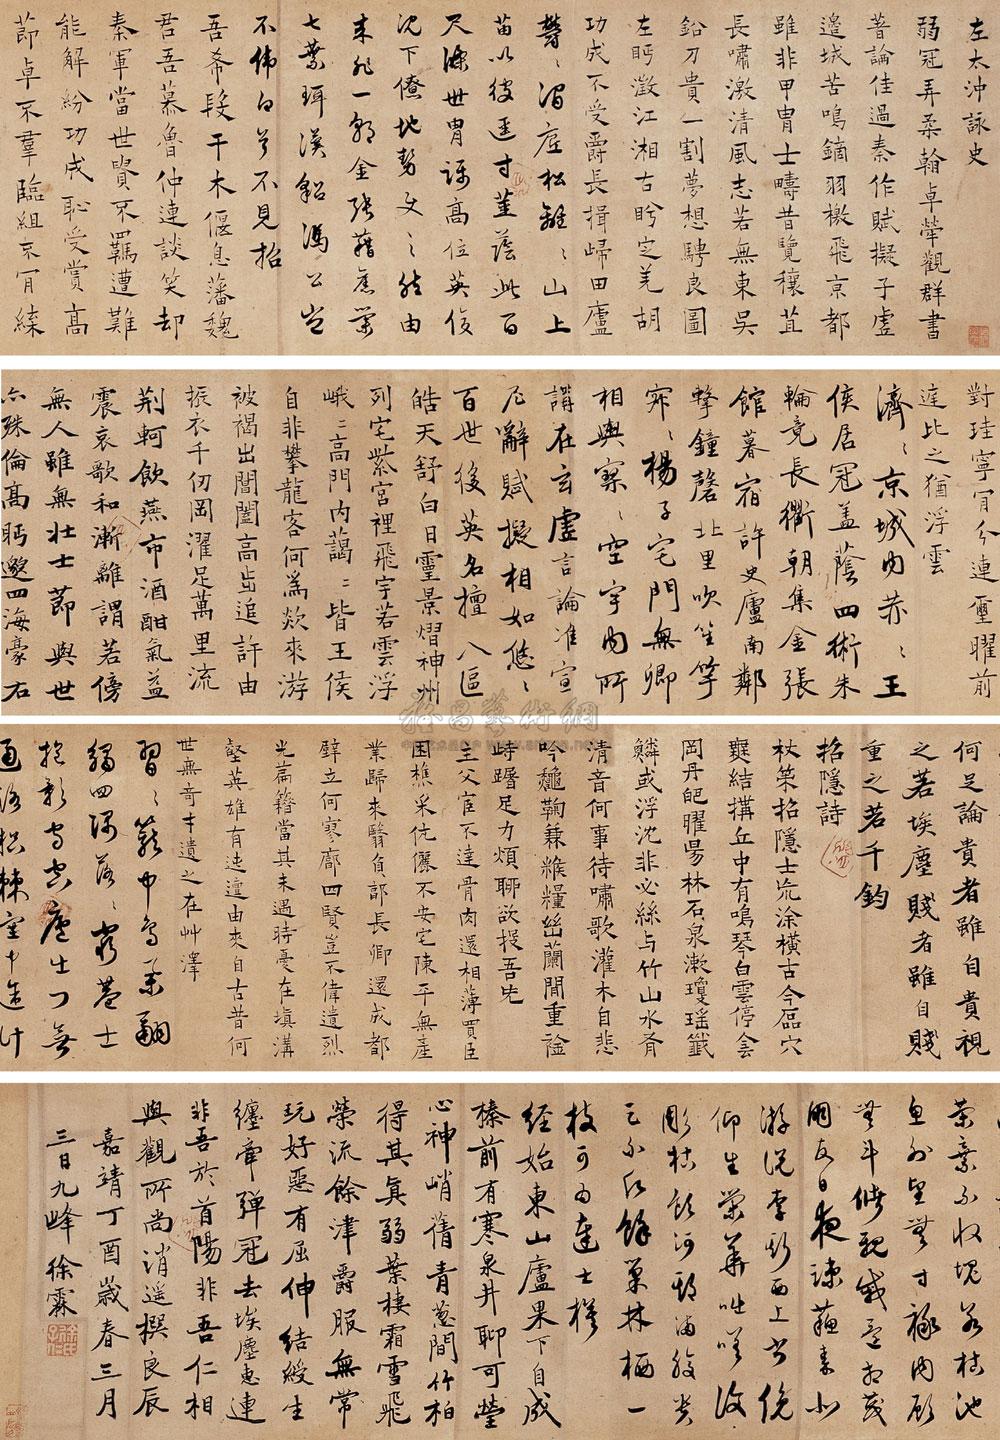 左太沖詠史
弱冠弄柔翰卓犖觀群書
著論佳過秦作賦擬子虛
邊城苦鳴鏑羽檄飛京都
雖非甲胄士疇昔覽穰苴
長嘯激清風志若無東吳
鉛刀貴一割夢想騁良圖
左眄澂江湘右盻定羌胡
功成不受爵長揖歸田廬
鬱〻澗底松離〻山上
苗以彼徑寸莖蔭此百
尺條世胄躡高位英俊
沈下僚地勢使之然由
來非一朝金張藉舊業
七葉珥漢貂馮公豈
不偉白首不見招
吾希段干木偃息藩魏
君吾慕魯仲連談笑却
秦軍當世貴不羈遭難
能解紛功成恥受賞高
節卓不羣臨組不肯緤
對珪寧肯分連璽曜前
庭比之猶浮雲
濟〻京城內赫〻王
侯居冠蓋蔭四術朱
輪竟長衢朝集金張
館暮宿許史廬南鄰
擊鐘磬北里吹笙竽
寂〻楊子宅門無卿
相輿寥〻空宇內所
講在玄虛言論准宣
尼辭賦擬相如悠〻
百世後英名擅八區
皓天舒白日靈景熠神州
列宅紫宮裡飛宇若雲浮
峨〻高門內藹〻皆王侯
自非攀龍客何為欻來游
被褐出閶闔高步追許由
振衣千仞岡濯足萬里流
荊軻飲燕市酒酣氣益
震哀歌和漸離謂若傍
無人雖無壯士節與世
亦殊倫高眄邈四海豪右
何足論貴者雖自貴視
之若埃塵賤者雖自賤
重之若千鈞
招隱詩
杖策招隱士荒涂橫古今巖穴
無結搆丘中有鳴琴白雲停陰
岡丹葩曜陽林石泉漱瓊瑤籤
鱗或浮沈非必絲与竹山水有
清音何事待嘯歌灌木自悲
吟秋菊兼糇糧幽蘭間重襟
躊躇足力煩聊欲投吾簪
主父宦不達骨肉還相薄買臣
困樵采伉儷不安宅陳平無產
業歸來翳負郭長卿還成都
壁立何寥廓四賢豈不偉遺烈
光篇籍當其未遇時憂在填溝
壑英雄有迍邅由來自古昔何
世無奇才遺之在艸澤
習〻籠中鳥舉翮
觸四隅落〻窮巷士
抱影守空廬出門無
通路枳棘塞中塗計
策棄不收塊若枯池
魚外望無寸祿內顧
無斗儲親戚還相蔑
朋友日夜疎蘇秦北
游說李斯西上書俛
仰生榮華咄嗟復
彫枯飲河期滿腹貴
足不願餘巢林栖一
枝可為達士模
經始東山廬果下自成
榛前有寒泉井聊可瑩
心神峭蒨青蔥間竹柏
得其真弱葉棲霜雪飛
榮流餘津爵服無常
玩好惡有屈伸結綬生
纏牽彈冠去埃塵惠連
非吾屈首陽非吾仁相
與觀所尚逍遙撰良辰
嘉靖丁酉歲春三月
三日九峰徐霖